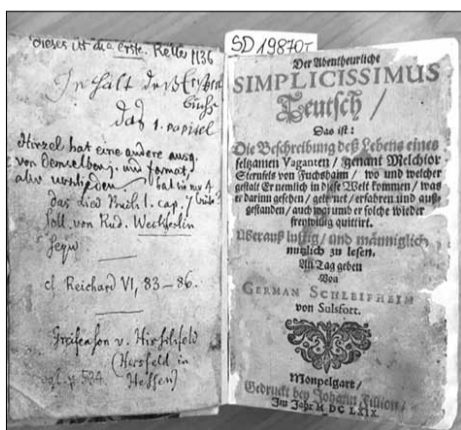 dieses ist die erste. Keller 1136
Inhalt
das 1. capitel
Hirzel hat eine andere ausg.
von demselben j. und format,
hat in nr 4
das lied Buch 1. cap. 7
soll von Rud. Weckherlin
seyn
cf Reichard VI, 83-86.
Greifenson v. Hirschfeld
(Hersfeld in
vgl. p. 584. Hessen)
SD 19870T
Der Abentheurliche
SIMPLICISSIMUS
Teutsch /
Das ist:
Die Beschreibung deß Lebens eines
seltzamen Vaganten / genant Melchior
Sternfels von Fuchshaim / wo und welcher
gestalt Er nemlich in diese Welt kommen / was
er darinn gesehen / gelernet / erfahren und auß-
gestanden / auch warumb er solche wieder
freywillig quittirt.
Überauß lustig / und männiglich
nutzlich zu lesen.
An Tag geben
Von
GERMAN SCHLEIFHEIM
von Sulsfort.
Monpelgart /
Gedruckt bey Johann Fillion /
Im Jahr M DC LXIX.